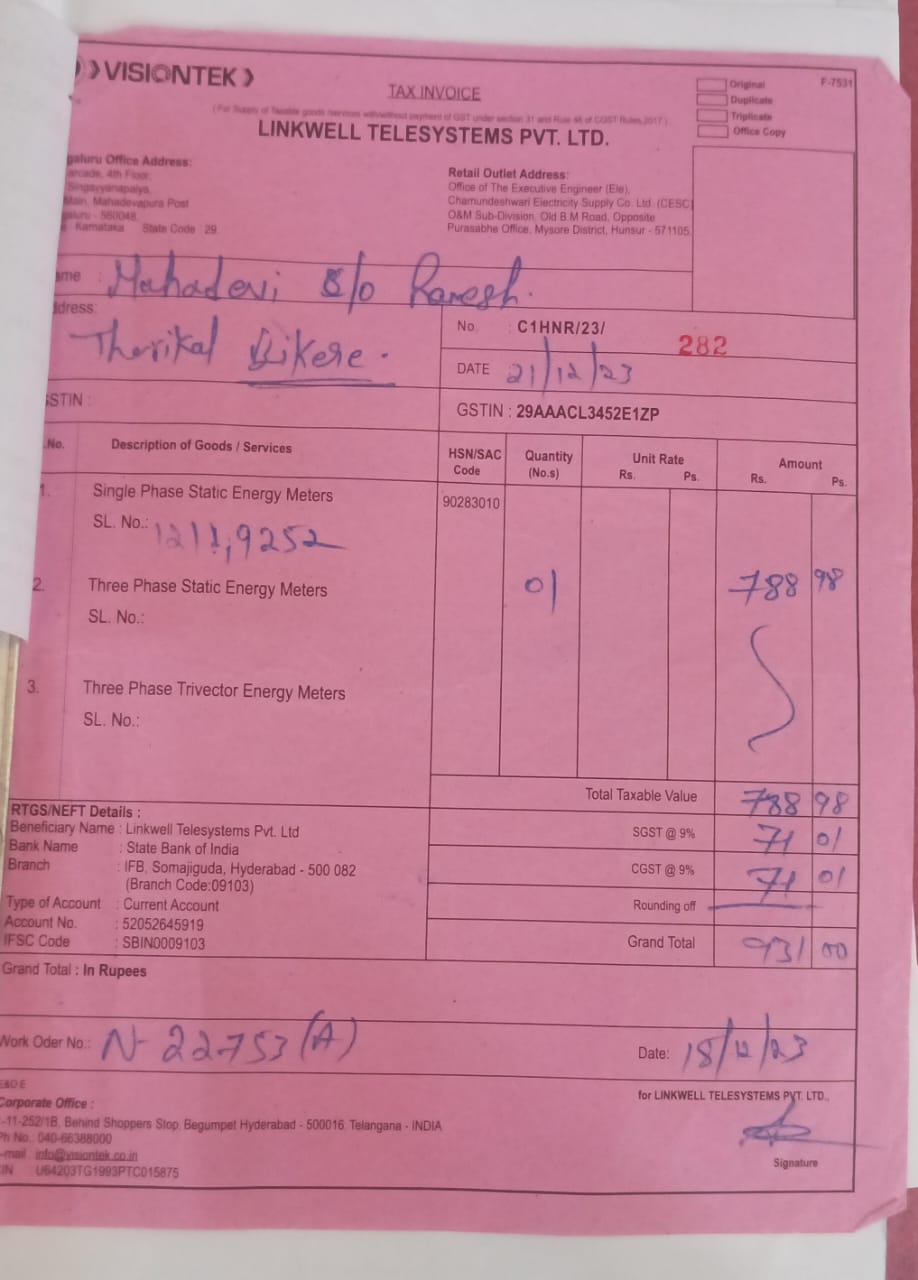 VISIONTEK
TAX INVOICE
F-7531
Original
Duplicate
Triplicate
Office Copy
(For Supply of Taxable goods /services with/without payment of GST under section 31 and Rule 46 of CGST Rules, 2017)
LINKWELL TELESYSTEMS PVT. LTD.
galuru Office Address:
arcade, 4th Floor,
Singayyanapalya,
Main, Mahadevapura Post
galuru - 560048,
Karnataka State Code 29.
Retail Outlet Address:
Office of The Executive Engineer (Ele),
Chamundeshwari Electricity Supply Co. Ltd. (CESC)
O&M Sub-Division, Old B.M Road, Opposite
Purasabhe Office, Mysore District, Hunsur - 571105.
ame : Mahadevi S/o Ramesh.
ddress:
Therikal
No. : C1HNR/23/ 282
DATE 21/12/23
GSTIN :
GSTIN : 29AAACL3452E1ZP
.No. Description of Goods / Services HSN/SAC Code Quantity (No.s) Unit Rate Rs. Ps. Amount Rs. Ps.
1. Single Phase Static Energy Meters 90283010
SL. No.:
2. Three Phase Static Energy Meters 01 788 98
SL. No.:
3. Three Phase Trivector Energy Meters
SL. No.:
Total Taxable Value 788 98
SGST @ 9% 71 01
CGST @ 9% 71 01
Rounding off
Grand Total 931 00
RTGS/NEFT Details :
Beneficiary Name : Linkwell Telesystems Pvt. Ltd
Bank Name : State Bank of India
Branch : IFB, Somajiguda, Hyderabad - 500 082
(Branch Code:09103)
Type of Account : Current Account
Account No. : 52052645919
IFSC Code : SBIN0009103
Grand Total : In Rupees
Work Oder No.: N- 22753 (A)
Date: 18/12/23
E&O E
Corporate Office :
-11-252/1B, Behind Shoppers Stop, Begumpet Hyderabad - 500016. Telangana - INDIA
Ph No.: 040-66388000
-mail : info@visiontek.co.in
IN U64203TG1993PTC015875
for LINKWELL TELESYSTEMS PVT. LTD.,
Signature